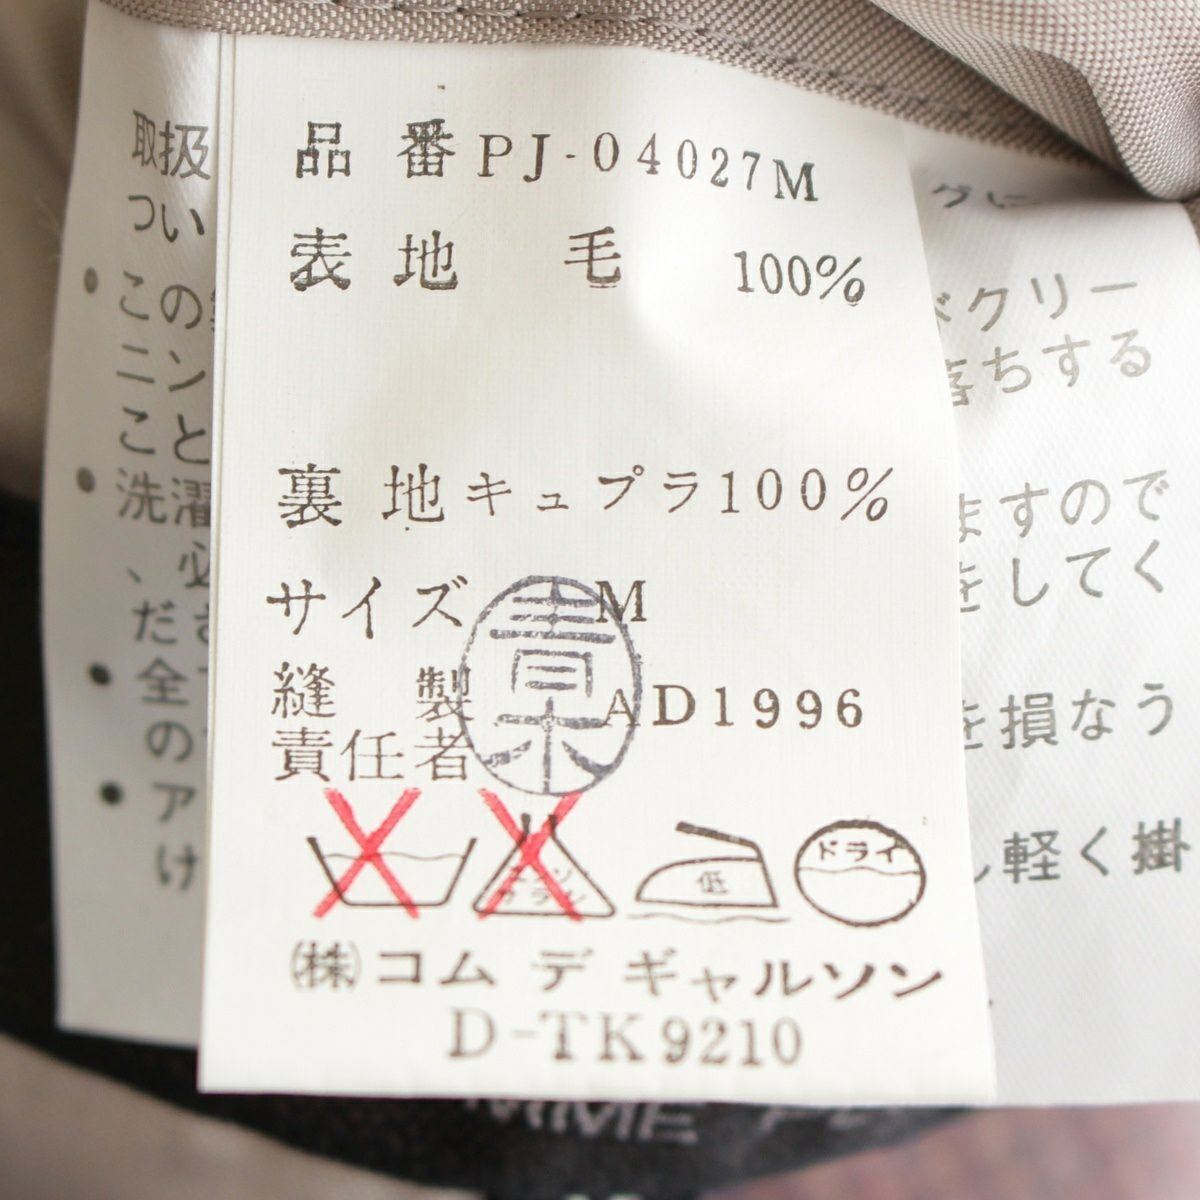 品番 PJ-04027M
表地 毛 100%
裏地 キュプラ100%
サイズ M
縫製 AD1996
責任者
青木
エンソ
サラシ
低
ドライ
(株)コム デ ギャルソン
D-TK9210
取扱
つい
グに
・この
クリー
ニン
落ちする
こと
・洗濯
ますので
、必
をしてく
ださ
・全
を損なう
の
・ア
し軽く掛
け